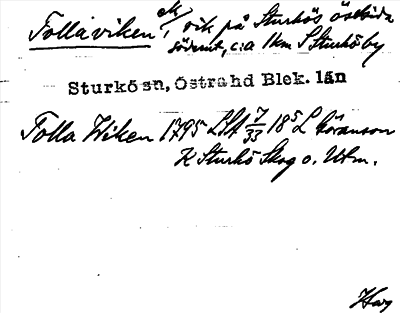 Tollaviken ek/, vik på Sturkös östsida
söderut, c:a 1 km S Sturköby
Sturkö sn, Östra hd Blek. län
Tolla Wiken 1795 LSA 7/33 18⁵ L Göranson
K Sturkö Skog o. Utm.